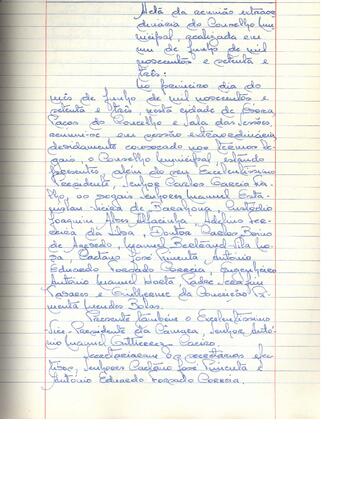 Acta da reunião extraor-
dinária do Conselho Mu-
nicipal, realizada em
um de Junho de mil
novecentos e setenta e
três:
No primeiro dia do
mês de Junho de mil novecentos e
setenta e três, nesta cidade de
Paços do Concelho e sala das sessões,
reuniu-se em sessão extraordinária
devidamente convocado nos termos le-
gais, o Conselho Municipal, estando
presentes, além do seu Excelentíssimo
Presidente, Senhor Carlos Garcia
os vogais Senhores Manuel
de Custódio
Joaquim Alves Adelino Fer-
reira da Silva, Doutor Carlos
de Azevedo, Manuel
Caetano José Pimenta António
Eduardo Torzado Correia, Engenheiro
António Manuel Padre Serafim
Tavares e Guilherme da Conceição Pi-
menta Mendes
Presente também o Excelentíssimo
Vice-Presidente da Câmara, Senhor Antó-
nio Manuel
Secretariaram os secretários efec-
tivos, Senhores Caetano José Pimenta e
António Eduardo Torzado Correia.